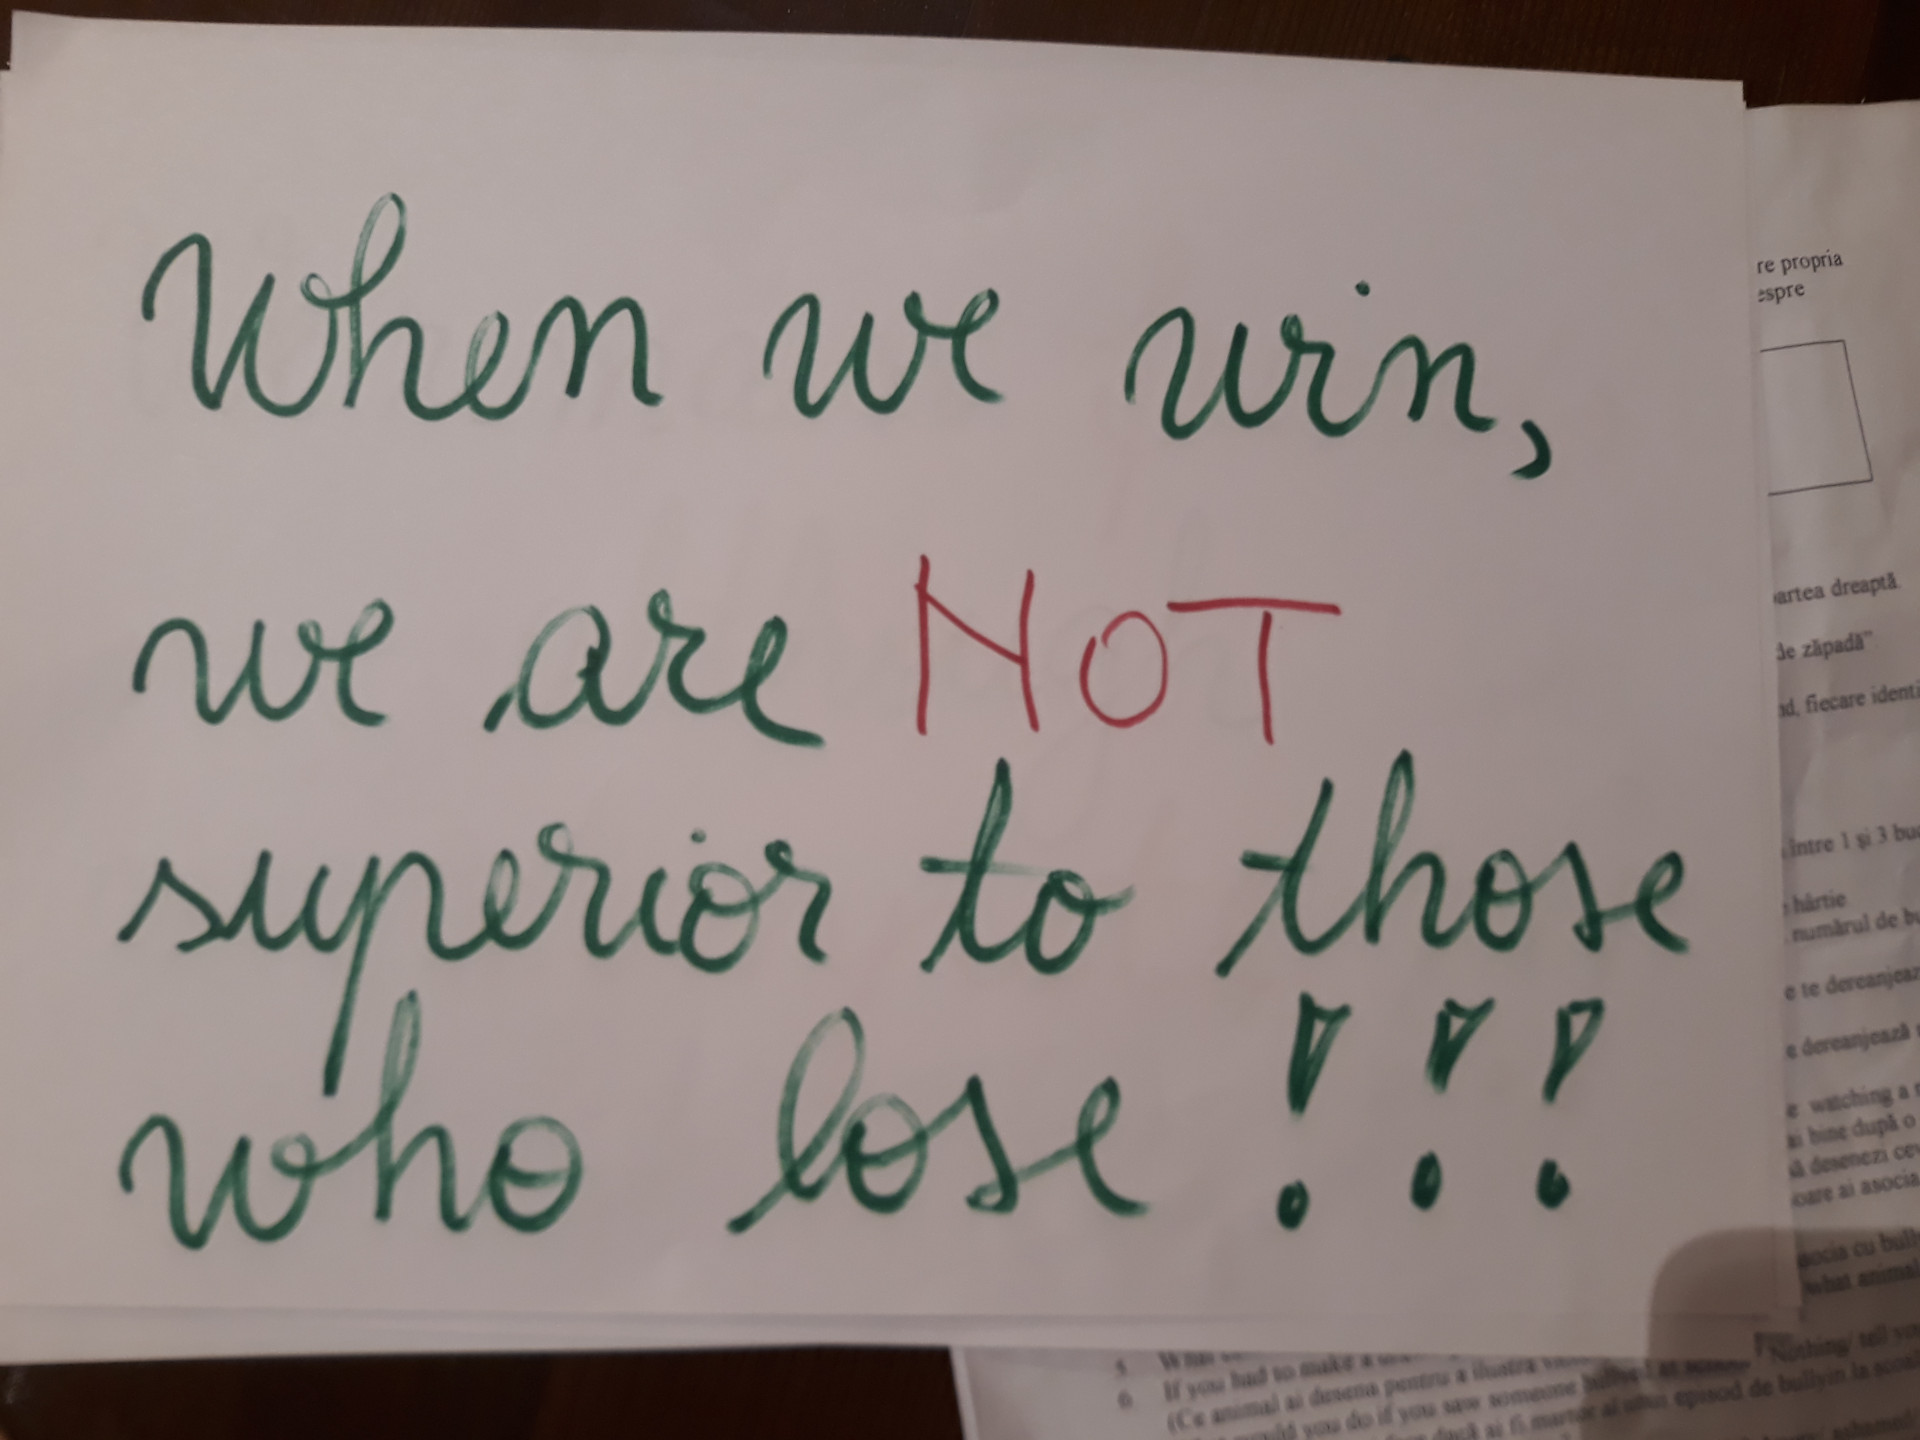 When we win,
we are NOT
superior to those
who lose!!!
re propria
espre
partea dreaptă
de zăpadă"
fiecare identi
între 1 și 3
hârtie
numărul de
e te dereanjeaz
e dereanjează
watching a
bine după o
desenezi
ai asocia
asocia cu
what animal
5.
6. If you had to make a
(Ce animal ai desena pentru a ilustra
would you do if you saw someone bullied at school Nothing/ tell
dacă ai fi martor al unui episod de bullyin la